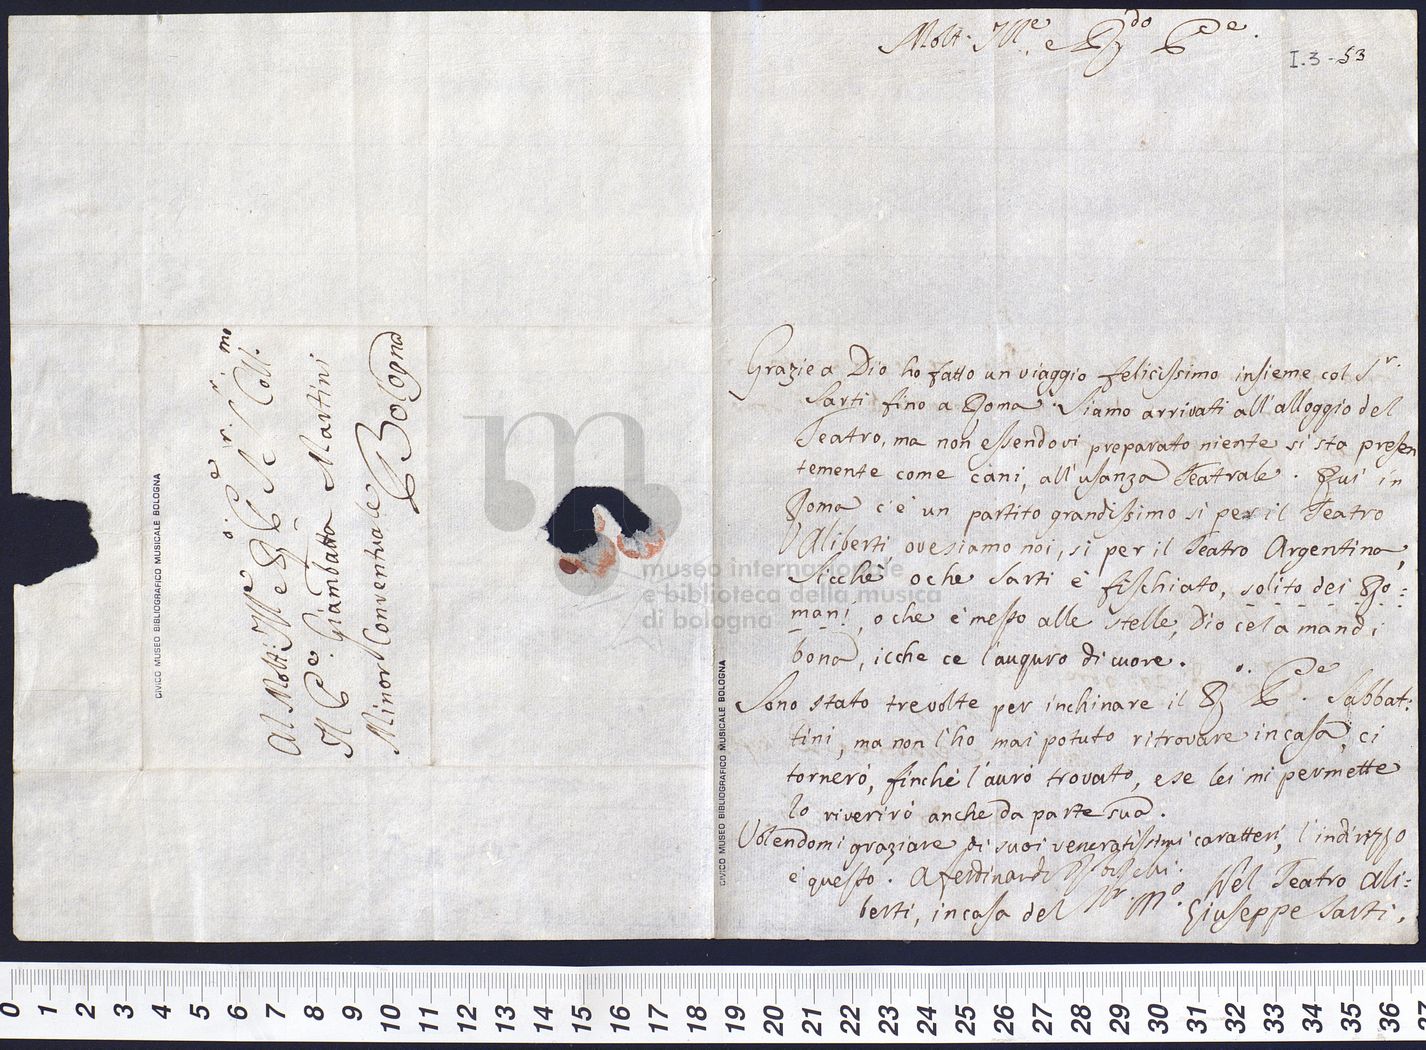 Al Molt: Ill:e e R:do P:re Sr. Sr. Coll:mo
Il P:re Giambatta Martini
Minor Conventuale
Bologna
CIVICO MUSEO BIBLIOGRAFICO MUSICALE BOLOGNA
museo internazionale
e biblioteca della musica
di bologna
CIVICO MUSEO BIBLIOGRAFICO MUSICALE BOLOGNA
Molt. Ill:e e R:do P:re.
I.3-53
Grazie a Dio ho fatto un viaggio felicissimo insieme col Sr.
Sarti fino a Roma. Siamo arrivati all'alloggio del
Teatro, ma non essendovi preparato niente si sta presen
temente come cani, all'usanza Teatrale. Qui in
Roma c'è un partito grandissimo sì per il Teatro
Aliberti ove siamo noi, sì per il Teatro Argentina,
sicché o che Sarti è fischiato, solito dei Ro:
mani, o che è messo alle stelle, Dio ce la mandi
bona, icche ce l'auguro di cuore.
Sono stato tre volte per inchinare il R:o P:re. Sabbat:
tini, ma non l'ho mai potuto ritrovare in casa, ci
tornerò, finché l'aurò trovato, e se lei mi permette
lo riverirò anche da parte sua.
Volendomi graziare di suoi veneratissimi caratteri, l'indirizzo
è questo. A Ferdinando Nel Teatro Ali:
berti, in casa del Sr. M:o. Giuseppe Sarti.
0 1 2 3 4 5 6 7 8 9 10 11 12 13 14 15 16 17 18 19 20 21 22 23 24 25 26 27 28 29 30 31 32 33 34 35 36 37